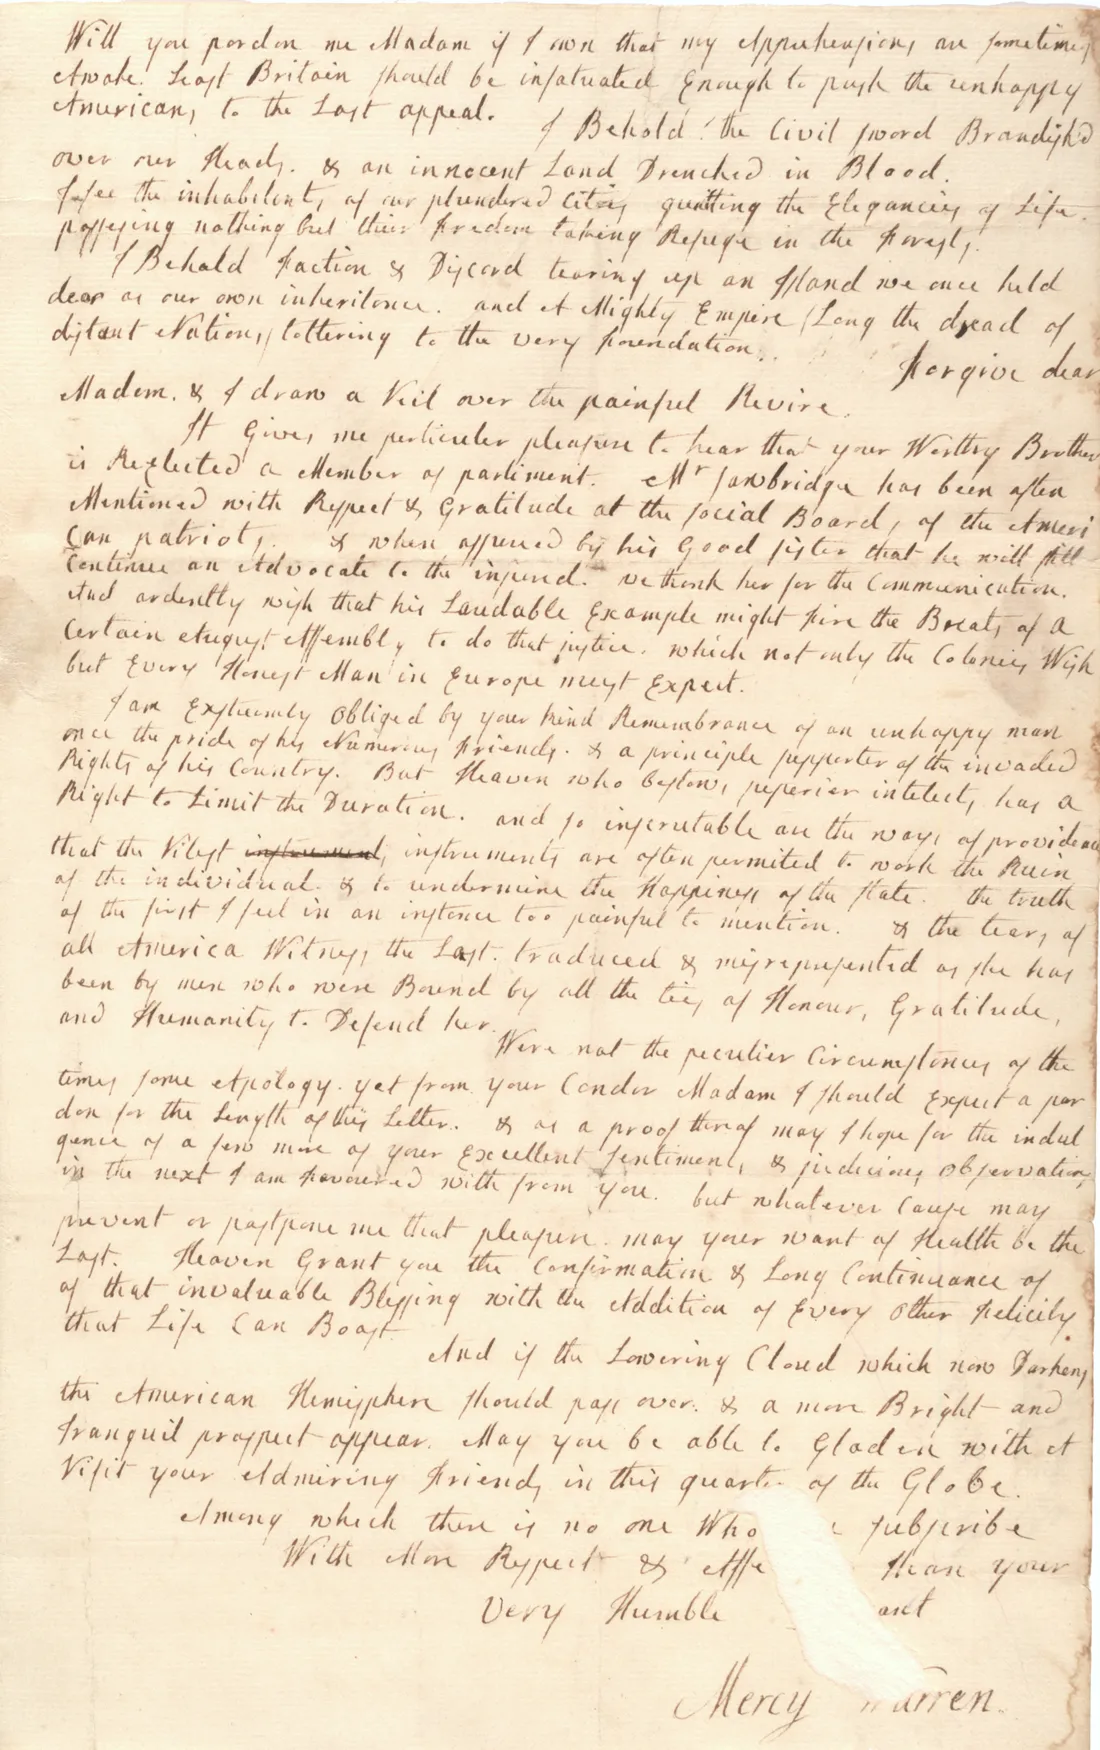 Will you pardon me Madam if I own that my Apprehensions are sometimes
Awake. Least Britain should be infatuated Enough to push the unhappy
Americans to the Last appeal. I Behold the Civil sword Brandish'd
over our Heads. & an innocent Land Drenched in Blood.
I see the inhabitents of our plundered Cities quitting the Elegancies of Life.
possessing nothing but their freedom taking Refuge in the Forests.
I Behold Faction & Discord tearing up an Island we once held
dear as our own inheritance. and A Mighty Empire (Long the dread of
distant Nations) tottering to the very foundation. Forgive dear
Madam. & I draw a Veil over the painful Revire.
It Gives me perticuler pleasure to hear that your Worthy Brother
is Reelected a Member of parliment. Mr Sawbridge has been often
Mentioned with Respect & Gratitude at the social Boards of the Ameri
can patriots. & when assured by his Good sister that he will still
Continue an Advocate to the injured. we thank her for the Communication.
And ardently wish that his Laudable Example might fire the Breats of a
Certain August Assembly to do that justice. which not only the Colonies Wish
but Every Honest Man in Europe must Expect.
I am Extreemly obliged by your kind Remembrance of an unhappy man
once the pride of his Numerous Friends. & a principle supporter of the invaded
Rights of his Country. But Heaven who bestows superior intelects has a
Right to Limit the Duration. and so inscrutable are the ways of providence
that the Vilest instruments instruments are often permited to work the Ruin
of the individual. & to undermine the Happiness of the state. the truth
of the first I feel in an instance too painful to mention. & the tears of
all America Witness the Last. traduced & misrepresented as she has
been by men who were Bound by all the ties of Honour, Gratitude,
and Humanity to Defend her.
Were not the peculier Circumstances of the
times some Apology. yet from your Candor Madam I should Expect a par
don for the Length of this Letter. & as a proof thereof may I hope for the indul
gence of a few more of your Excellent sentiments & judicious observations
in the next I am favoured with from you. but whatever cause may
prevent or postpone me that pleasure. may your want of Health be the
Last. Heaven Grant you the Confirmation & Long Continuance of
of that invaluable Blessing with the Addition of Every other Felicity
that Life Can Boast
And if the Lowering Cloud which now Darkens
the American Hemisphere should pass over. & a more Bright and
tranquil prospect appear. May you be able to Gladen with A
Visit your Admiring Friends in this quarter of the Globe.
Among which there is no one Who subscribe
With More Respect & Affe than your
Very Humble ant
Mercy Warren.